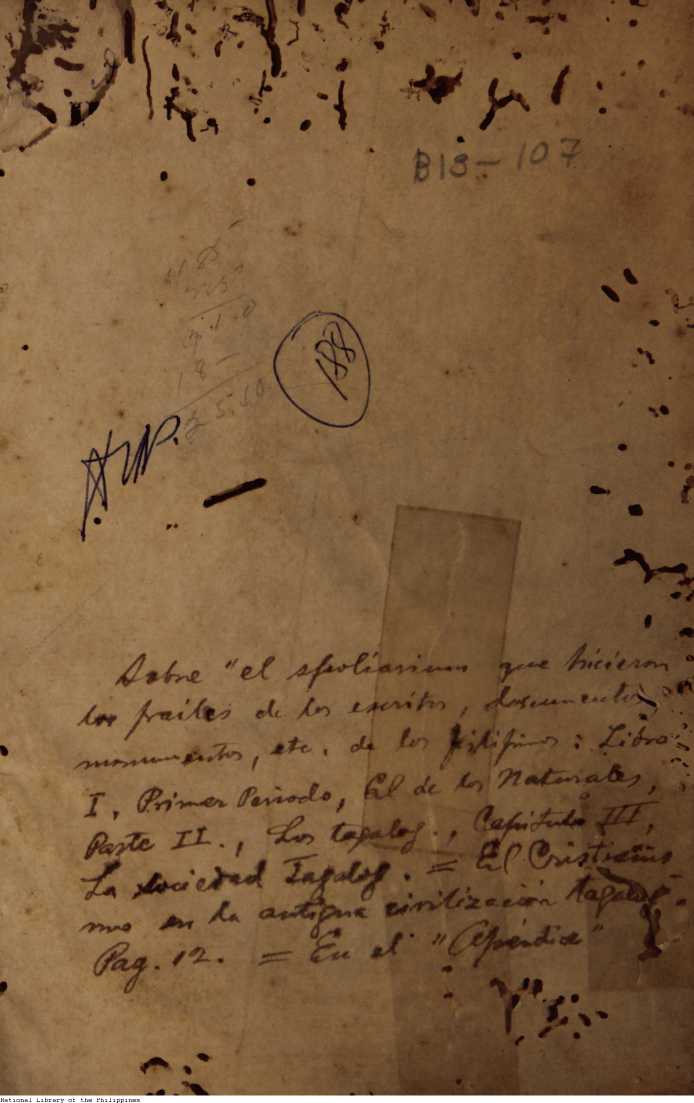 B13-107
188
Sobre "el spoliarium que hicieron
los frailes de los escritos, documentos,
monumentos, etc. de los filipinos: Libro
I, Primer Periodo, El de los Naturales,
Parte II., Los tagalog., Capitulo III,
La sociedad Tagalog. = El Cristianis
mo en la antigua civilización tagalog.
Pag. 12. = En el "Apéndice"
National Library of the Philippines